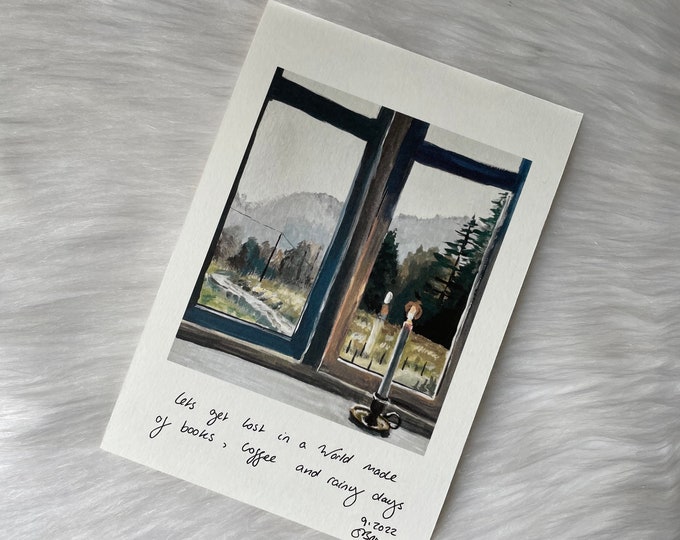 lets get lost in a World made
of books, coffee and rainy days
9.2022